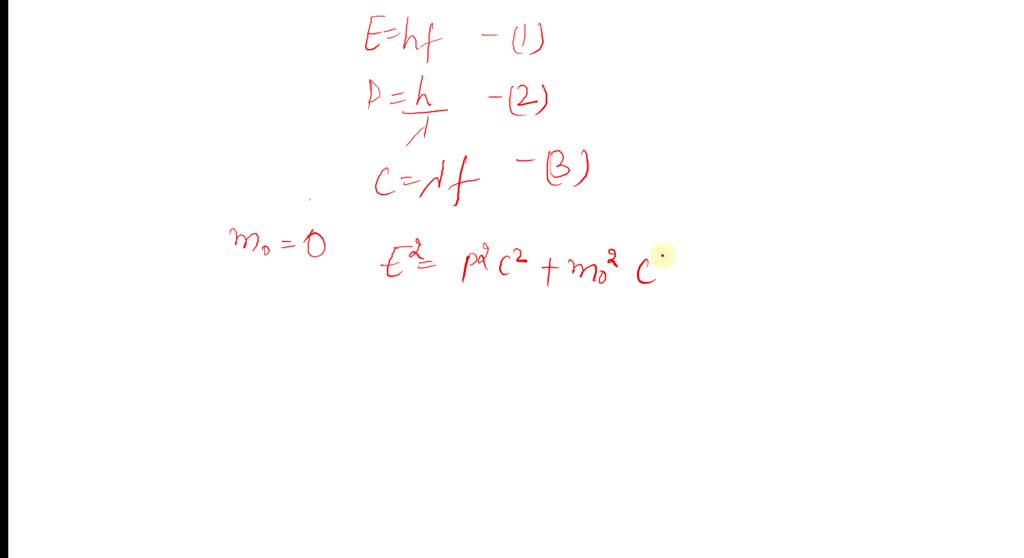 E=hf -(1)
P=h/λ -(2)
C=λf -(3)
m₀=0 E²= p²c²+m₀²c